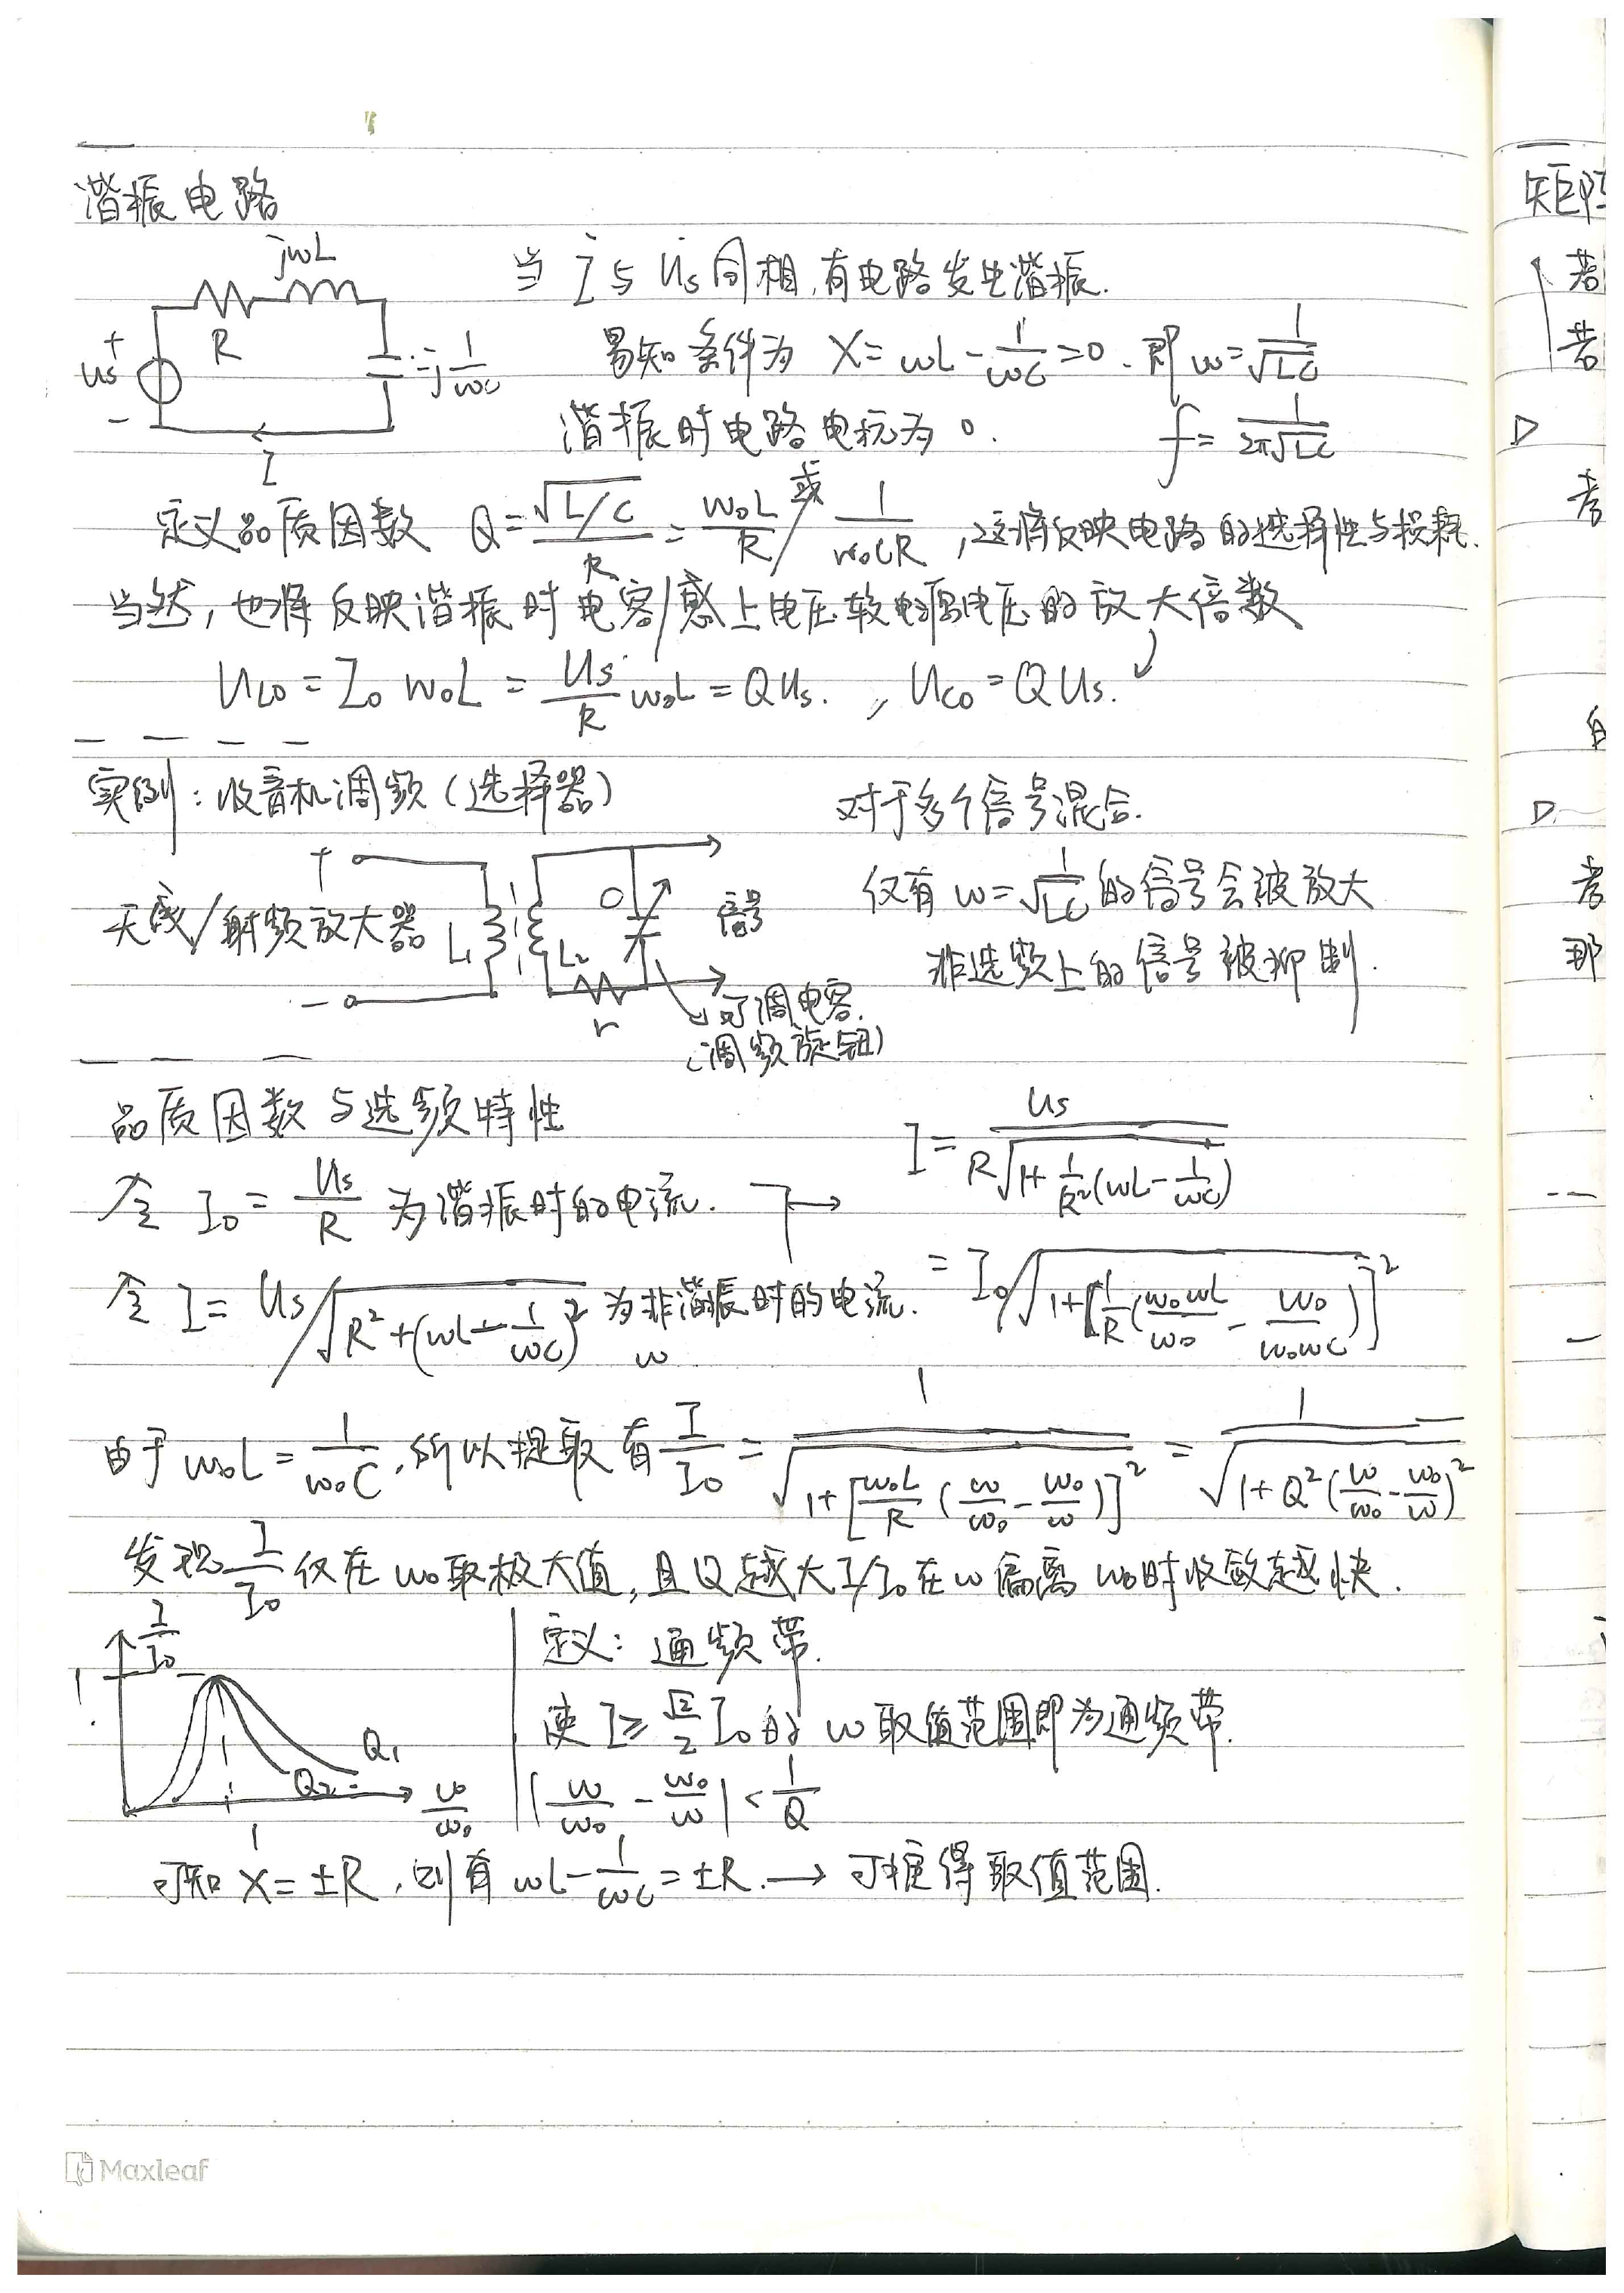 谐振电路
jωL
R
+
us
-
-j 1/ωC
I
当 İ 与 U̇s 同相,有电路发生谐振.
易知条件为 X = ωL - 1/ωC = 0. 即 ω = 1/√LC
谐振时电路电抗为 0.
f = 1/2π√LC
定义品质因数 Q = √(L/C)/R = ω₀L/R 或 1/ω₀CR ,这将反映电路的选择性与损耗.
当然,也将反映谐振时电容/感上电压较电源电压的放大倍数
UL0 = I₀ ω₀L = Us/R ω₀L = QUs. , UC0 = QUs.
实例:收音机调频(选择器)
对于多个信号混合.
仅有 ω = 1/√LC 的信号会被放大
非选频上的信号被抑制.
+
天线/射频放大器
-
L₁
L₂
C
r
信号
可调电容.
(调频旋钮)
品质因数与选频特性
令 I₀ = Us/R 为谐振时的电流.
I = Us / R√(1+ 1/R²(ωL - 1/ωC))
令 I = Us/√(R²+(ωL - 1/ωC)²) 为非谐振时的电流.
ω
= I₀/√(1+[1/R(ω₀ωL/ω₀ - ω₀/ω₀ωC)]²)
由于 ω₀L = 1/ω₀C ,所以提取有 I/I₀ = 1/√(1+[ω₀L/R (ω/ω₀ - ω₀/ω)]²) = 1/√(1+Q²(ω/ω₀ - ω₀/ω)²)
发现 I/I₀ 仅在 ω₀ 取极大值,且Q越大 I/I₀ 在 ω 偏离 ω₀ 时收敛越快.
I/I₀
1
Q₁
Q₂
ω/ω₀
1
定义:通频带.
使 I ≥ √2/2 I₀ 的 ω 取值范围即为通频带.
|ω/ω₀ - ω₀/ω| < 1/Q
可知 X = ±R ,则有 ωL - 1/ωC = ±R. → 可推得取值范围.
Maxleaf
矩阵
若
若
考
自
考
那